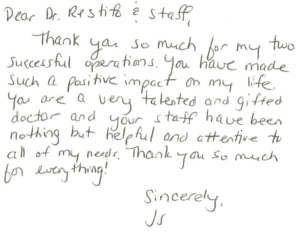 Dear Dr. Restifo & Staff,
Thank you so much for my two
successful operations. You have made
such a positive impact on my life.
You are a very talented and gifted
doctor and your staff have been
nothing but helpful and attentive to
all of my needs. Thank you so much
for everything!
Sincerely,
JS